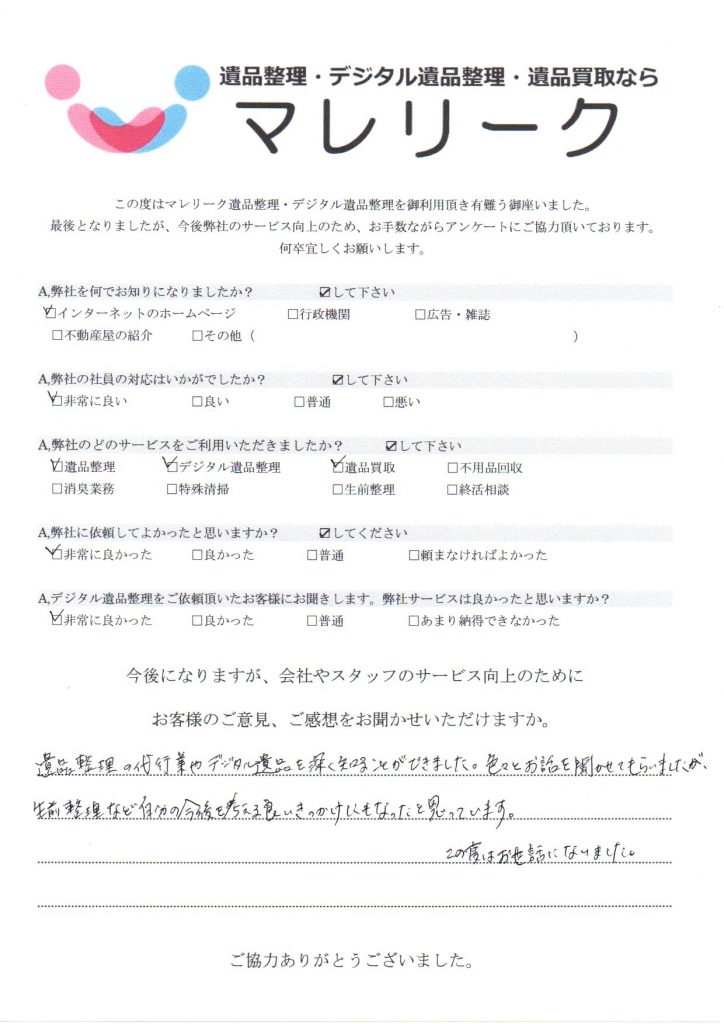 遺品整理・デジタル遺品整理・遺品買取なら
マレリーク
この度はマレリーク遺品整理・デジタル遺品整理を御利用頂き有難う御座いました。
最後となりましたが、今後弊社のサービス向上のため、お手数ながらアンケートにご協力頂いております。
何卒宜しくお願いします。
A,弊社を何でお知りになりましたか？ ☑して下さい
☑インターネットのホームページ □行政機関 □広告・雑誌
□不動産屋の紹介 □その他（ ）
A,弊社の社員の対応はいかがでしたか？ ☑して下さい
☑非常に良い □良い □普通 □悪い
A,弊社のどのサービスをご利用いただきましたか？ ☑して下さい
☑遺品整理 ☑デジタル遺品整理 ☑遺品買取 □不用品回収
□消臭業務 □特殊清掃 □生前整理 □終活相談
A,弊社に依頼してよかったと思いますか？ ☑してください
☑非常に良かった □良かった □普通 □頼まなければよかった
A,デジタル遺品整理をご依頼頂いたお客様にお聞きします。弊社サービスは良かったと思いますか？
☑非常に良かった □良かった □普通 □あまり納得できなかった
今後になりますが、会社やスタッフのサービス向上のために
お客様のご意見、ご感想をお聞かせいただけますか。
遺品整理の代行業やデジタル遺品を深く知ることができました。色々とお話を聞かせてもらいましたが、
生前整理など自分の今後を考える良いきっかけにもなったと思っています。
この度はお世話になりました。
ご協力ありがとうございました。